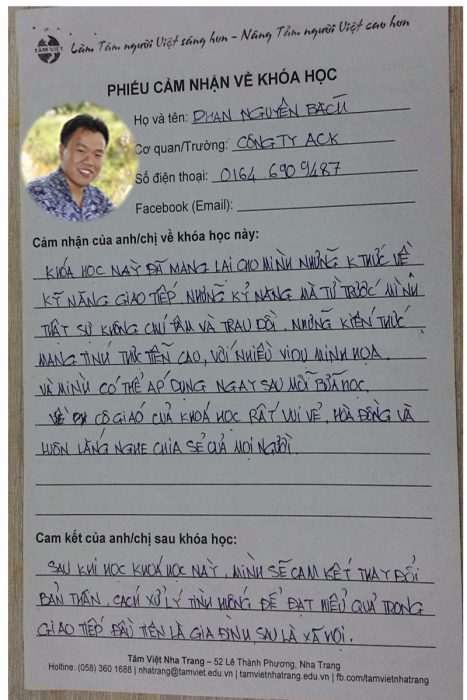 Làm Tâm người Việt sáng hơn - Nâng Tầm người Việt cao hơn
TÂM VIỆT
PHIẾU CẢM NHẬN VỀ KHÓA HỌC
Họ và tên: PHAN NGUYÊN BÁCH
Cơ quan/Trường: CÔNG TY ACK
Số điện thoại: 0164 690 9487
Facebook (Email):
Cảm nhận của anh/chị về khóa học này:
KHÓA HỌC NÀY ĐÃ MANG LẠI CHO MÌNH NHỮNG K THỨC VỀ
KỸ NĂNG GIAO TIẾP, NHỮNG KỶ NĂNG MÀ TỪ TRƯỚC MÌNH
THẬT SỰ KHÔNG CHÚ TÂM VÀ TRAU DỒI. NHỮNG KIẾN THỨC
MANG TÍNH THỰC TIỄN CAO, VỚI NHIỀU VÍ DỤ MINH HỌA.
VÀ MÌNH CÓ THỂ ÁP DỤNG NGAY SAU MỖI BUỔI HỌC.
CÔ GIÁO CỦA KHOÁ HỌC RẤT VUI VẺ, HOÀ ĐỒNG VÀ
LUÔN LẮNG NGHE CHIA SẺ CỦA MỌI NGƯỜI.
Cam kết của anh/chị sau khóa học:
SAU KHI HỌC KHOÁ HỌC NÀY, MÌNH SẼ CAM KẾT THAY ĐỔI
BẢN THÂN, CÁCH XỬ LÝ TÌNH HUỐNG ĐỂ ĐẠT HIỆU QUẢ TRONG
GIAO TIẾP ĐẦU TIÊN LÀ GIA ĐÌNH, SAU LÀ XÃ HỘI.
Tâm Việt Nha Trang – 52 Lê Thành Phương, Nha Trang
Holtine: (058) 360 1688 | nhatrang@tamviet.edu.vn | tamvietnhatrang.edu.vn | fb.com/tamvietnhatrang